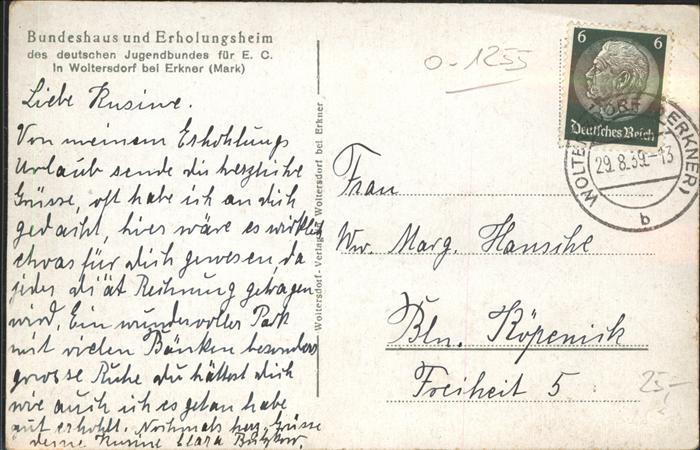 Bundeshaus und Erholungsheim
des deutschen Jugendbundes für E. C.
In Woltersdorf bei Erkner (Mark)
Liebe Kusine.
Von meinem Erhohlungs
Urlaub sende dir herzliche
Grüsse, oft habe ich an dich
gedacht, hier wäre es wirklich
etwas für dich gewesen, da
jeder diät Rechnung getragen
wird, Ein wundervoller Park
mit vielen Bänken besonders
grosse Ruhe du hättest dich
wie auch ich es getan habe
gut erhohlt. Nochmals herz. Grüsse
deine Kusine Clara
Woltersdorf-Verlag Woltersdorf bei Erkner
0-1255
6 6
Deutsches Reich
WOLTERSDORF (ERKNER)
29.8.39.-13
b
Frau
Ww. Marg. Hansche
Bln. Köpenick
Freiheit 5
25,-